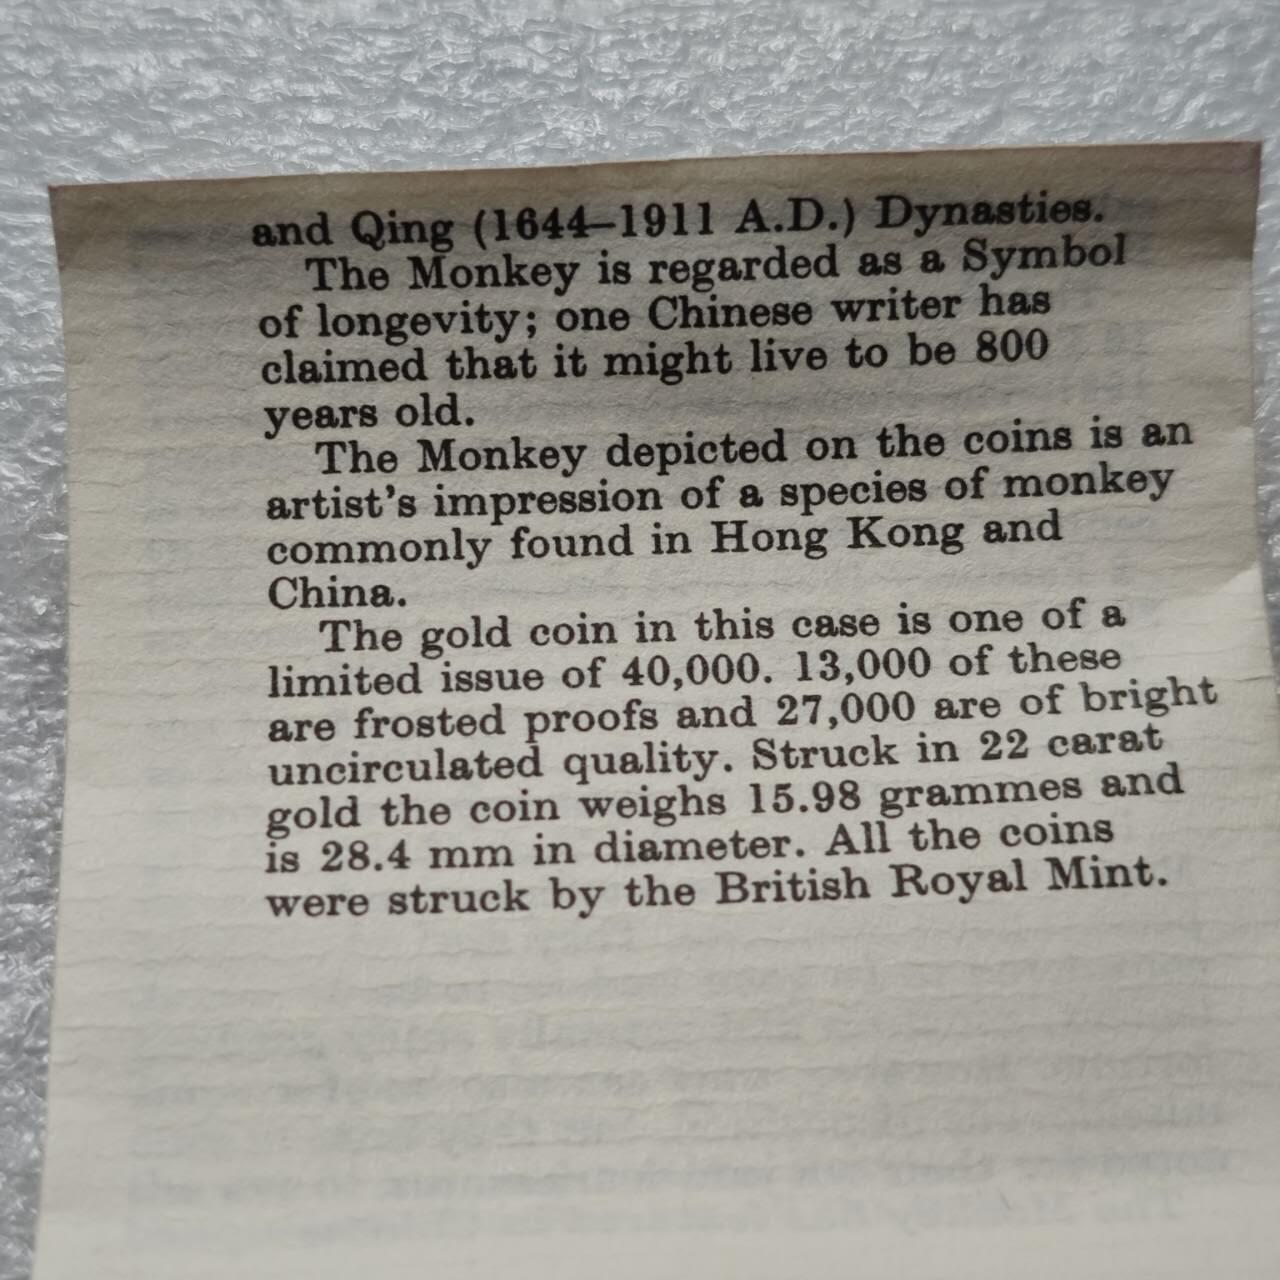 and Qing (1644–1911 A.D.) Dynasties.
The Monkey is regarded as a Symbol
of longevity; one Chinese writer has
claimed that it might live to be 800
years old.
The Monkey depicted on the coins is an
artist's impression of a species of monkey
commonly found in Hong Kong and
China.
The gold coin in this case is one of a
limited issue of 40,000. 13,000 of these
are frosted proofs and 27,000 are of bright
uncirculated quality. Struck in 22 carat
gold the coin weighs 15.98 grammes and
is 28.4 mm in diameter. All the coins
were struck by the British Royal Mint.